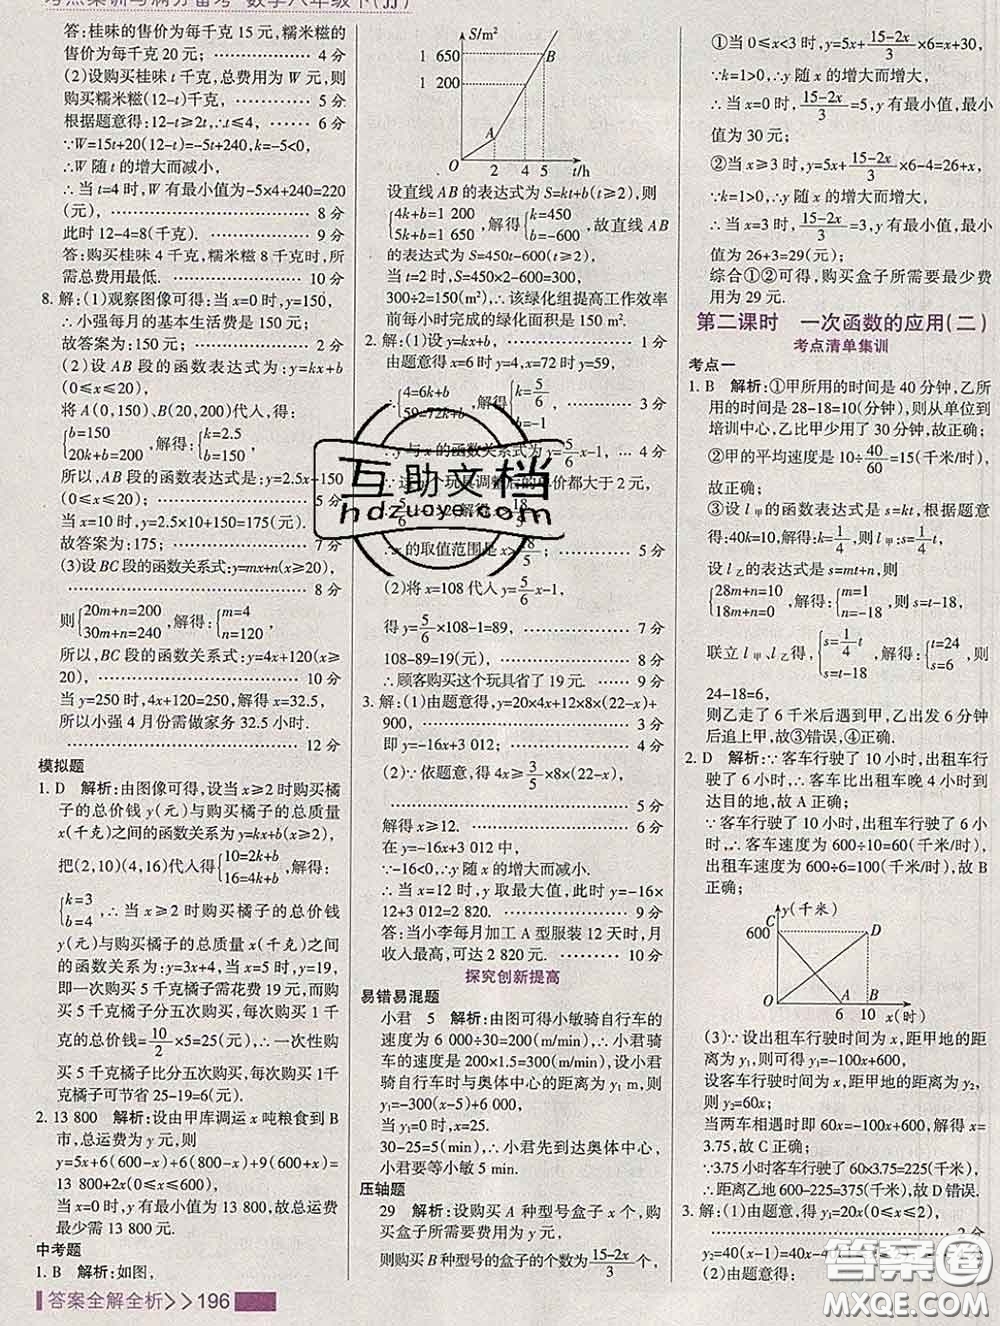 考点集训与满分备考 数学八年级下(JJ)
答:桂味的售价为每千克 15 元,糯米糍的
售价为每千克 20 元; 4 分
(2)设购买桂味 t 千克,总费用为 W 元,则
购买糯米糍(12-t)千克, 5 分
根据题意得:12-t≥2t,∴t≤4, 6 分
∵W=15t+20(12-t)=-5t+240,k=-5<0,
∴W 随 t 的增大而减小,
∴当 t=4 时,W 有最小值为-5×4+240=220
(元), 8 分
此时 12-4=8(千克). 9 分
答:购买桂味 4 千克,糯米糍 8 千克时,所
需总费用最低. 10 分
8. 解:(1)观察图像可得:当 x=0 时,y=150,
∴小强每月的基本生活费是 150 元;
故答案为:150; 3 分
(2)设 AB 段的函数表达式为:y=kx+b
(0≤x≤20).
将 A(0,150)、B(20,200)代入,得:
{b=150 20k+b=200,解得:{k=2.5 b=150,
所以,AB 段的函数表达式是:y=2.5x+150
(0≤x≤20).
当 x=10 时,y=2.5×10+150=175(元)
故答案为:175; 7 分
(3)设 BC 段的函数关系式:y=mx+n(x≥20).
8 分
则{20m+n=200 30m+n=240,解得:{m=4 n=120,
所以,BC 段的函数关系式:y=4x+120(x≥
20), 10 分
当 y=250 时,4x+120=250,解得:x=32.5,
所以小强 4 月份需做家务 32.5 小时.
12 分
模拟题
1. D 解析:由图像可得,设当 x≥2 时购买橘
子的总价钱 y(元)与购买橘子的总质量
x(千克)之间的函数关系为 y=kx+b(x≥2),
把(2,10)(4,16)代入得{10=2k+b 16=4k+b,解得:
{k=3 b=4,∴当 x≥2 时购买橘子的总价钱
y(元)与购买橘子的总质量 x(千克)之间
的关系为 y=3x+4,当 x=5 时,y=19,
即一次购买 5 千克橘子需花费 19 元,而购
买 5 千克橘子分五次购买,每次购买 1 千
克的总价=10/2×5=25(元),∴一次性购
买 5 千克橘子比分五次购买,每次购买 1千
克橘子可节省 25-19=6(元).
2. 13 800 解析:设由甲库调运 x 吨粮食到 B
市,总运费为 y 元,则
y=5x+6(600-x)+6(800-x)+9(600+x)=
13 800+2x(0≤x≤600),
当 x=0 时,y 最小=13 800,故总运费最
少需 13 800 元.
中考题
1. B 解析:如图,
S/m²
1 650
1 200
B
A
O 2 4 5 t/h
设直线 AB 的表达式为 S=kt+b(t≥2),则
{4k+b=1 200 5k+b=1 650,解得{k=450 b=-600,故直线 AB
的表达式为 S=450t-600(t≥2),
当 t=2 时,S=450×2-600=300,
300÷2=150(m²),∴该绿化组提高工作效率
前每小时完成的绿化面积是 150 m².
2. 解:(1)设 y=kx+b, 1 分
由题意得 x=6 时 y=4,x=72 时 y=59,
∴{4=6k+b 59=72k+b,解得{k=5/6 b=-1, 3 分
∴y 与 x 的函数关系式为 y=5/6x-1. 4 分
5 分
(2)将 x=108 代入 y=5/6x-1,
得 y=5/6×108-1=89, 7 分
108-89=19(元), 8 分
∴顾客购买这个玩具省了 19 元. 9 分
3. 解:(1)由题意得,y=20x+12×8×(22-x)+
900, 3 分
即 y=-16x+3 012; 4 分
(2)∵依题意,得 4x≥3/5×8×(22-x),
5 分
解得 x≥12. 6 分
在 y=-16x+3 012 中,
∵-16<0,∴y 随 x 的增大而减小.
∴当 x=12 时,y 取最大值,此时 y=-16×
12+3 012=2 820. 9 分
答:当小李每月加工 A 型服装 12 天时,月
收入最高,可达 2 820 元. 10 分
探究创新提高
易错易混题
小君 5 解析:由图可得小敏骑自行车的
速度为 6 000÷30=200(m/min),小君骑
车的速度是 200×1.5=300(m/min),设小君
骑自行车时与奥体中心的距离为 y₁ m,则
y₁=-300(x-5)+6 000,
当 y₁=0 时,x=25.
30-25=5(min),∴小君先到达奥体中心,
小君要等小敏 5 min.
压轴题
29 解析:设购买 A 种型号盒子 x 个,购
买盒子所需要费用为 y 元,
则购买 B 种型号的盒子的个数为 (15-2x)/3 个
①当 0≤x<3 时,y=5x+(15-2x)/3×6=x+30,
∵k=1>0,∴y 随 x 的增大而增大,
∴当 x=0 时,(15-2x)/3=5,y 有最小值,最小
值为 30 元;
②当 x≥3 时,y=5x+(15-2x)/3×6-4=26+x,
∵k=1>0,∴y 随 x 的增大而增大,
∴当 x=3 时,(15-2x)/3=3,y 有最小值,最小
值为 26+3=29(元);
综合①②可得,购买盒子所需要最少费
用为 29 元.
第二课时 一次函数的应用(二)
考点清单集训
考点一
1. B 解析:①甲所用的时间是 40 分钟,乙所
用的时间是 28-18=10(分钟),则从单位到
培训中心,乙比甲少用了 30 分钟,故正确;
②甲的平均速度是 10÷40/60=15(千米/时),
故正确;
③设 l甲的函数表达式为 s=kt,根据题意
得:40k=10,解得:k=1/4,则函数是 s=1/4t,
设 l乙的表达式是 s=mt+n,则
{28m+n=10 18m+n=0,解得:{m=1 n=-18,则 s=t-18,
联立 l甲、l乙得,{s=1/4t s=t-18,解得:{t=24 s=6,则
24-18=6,
则乙走了 6 千米后遇到甲,乙出发 6 分钟
后追上甲,故③错误,④正确.
2. D 解析:∵客车行驶了 10 小时,出租车行
驶了 6 小时,∴客车比出租车晚 4 小时到达
目的地,故 A 正确;
∵客车行驶了 10 小时,出租车行驶了 6 小
时,∴客车速度为 600÷10=60(千米/时),
出租车速度为 600÷6=100(千米/时),故
B 正确;
y(千米)
C
600
D
A B
O 6 10 x(时)
(3)∵设出租车行驶时间为 x,距甲地的距
离为 y₁,则 y₁=-100x+600,
设客车行驶时间为 x,距甲地的距离为 y₂,
则 y₂=60x;
当两车相遇时即 60x=-100x+600 时,x=
3.75,故 C 正确;
∵3.75 小时客车行驶了 60×3.75=225(千米),
距离乙地 600-225=375(千米),故 D 错误.
3. 解:(1)由题意,得 y₁=20x(0≤x≤2)
2 分
y₂=40(x-1)=40x-40
(2)由题意,得
答案全解全析>>196
互助文档
hdzuoye.com
答案圈
MXQE.COM